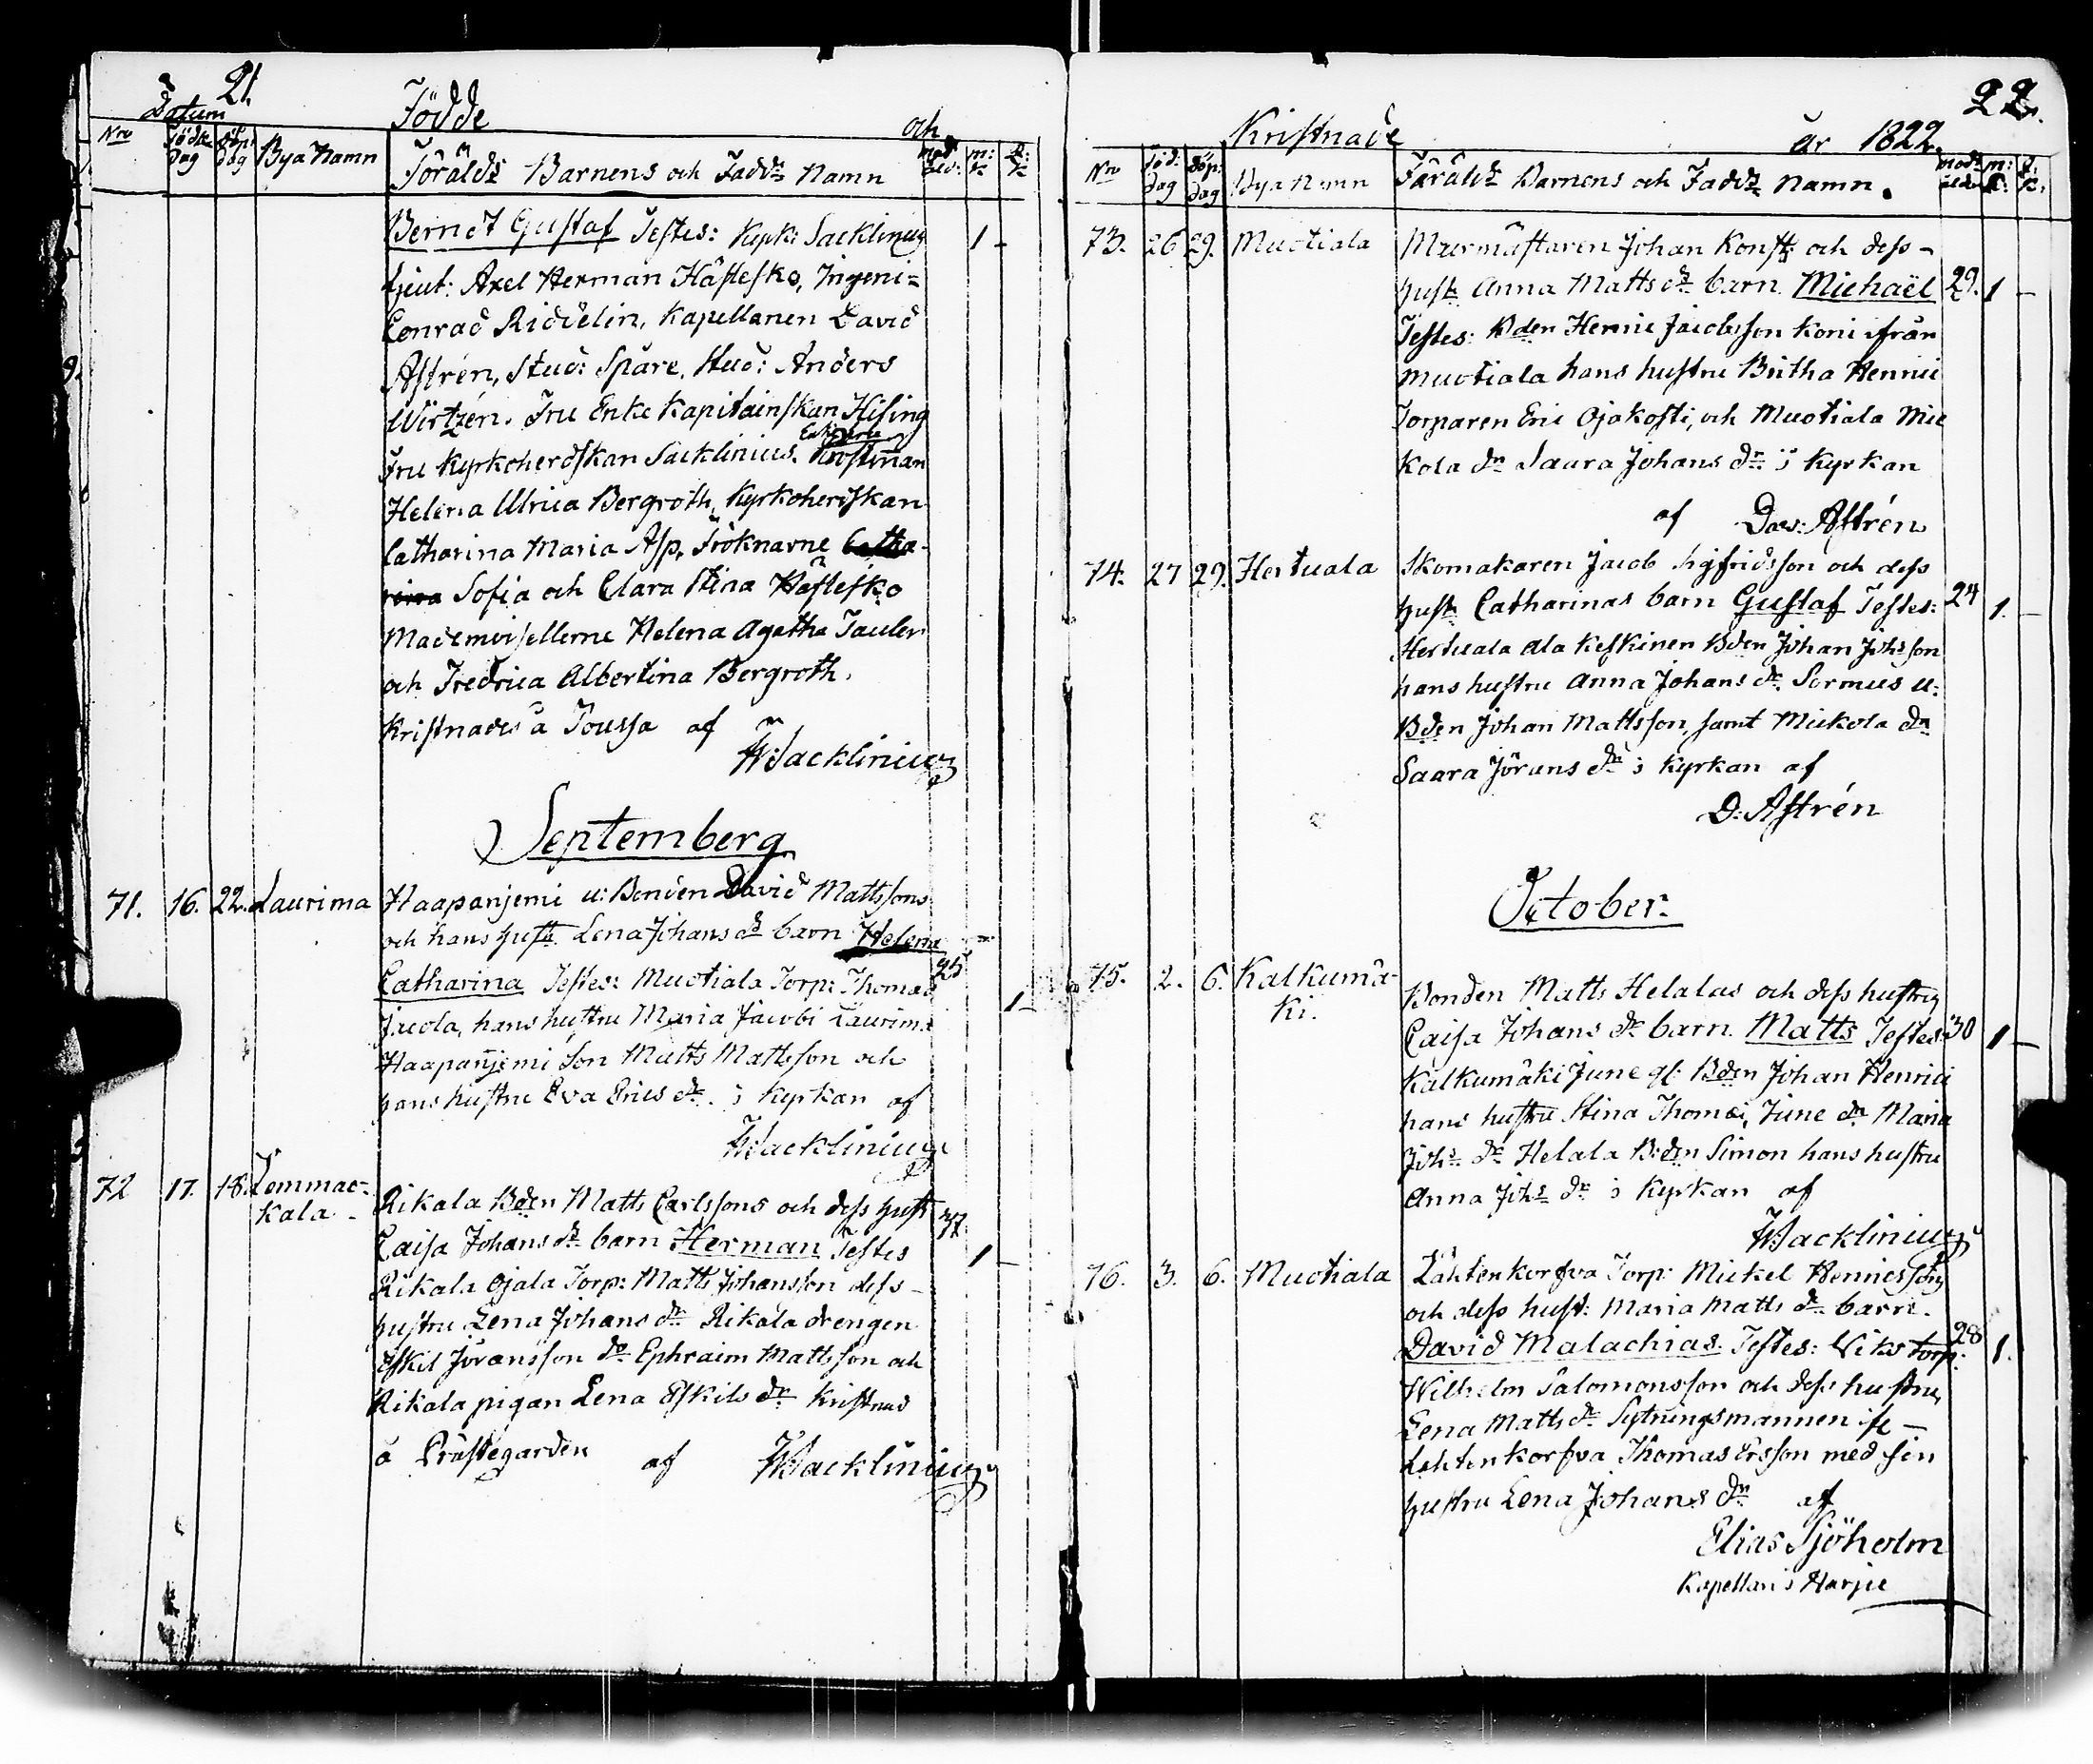 21.
Datum
Födde och
Nro Föd: dag Döp: dag Bya Namn Föräldr Barnens och Faddr Namn mod: åld: m: k: q: k:
Berndt Gustaf Testes: Kyrk: Sacklinius 1 -
Ljeut: Axel Herman Hästesko, Ingeni=
Conrad Riddelin, Kapellanen David
Astrén, Stud: Spåre, Stud: Anders
Wirtzén. Fru Enke Kapitainskan Hising
Fru Kyrkoherdskan Sacklinius.
Helena Ulrica Bergroth, Kyrkoherdskan
Catharina Maria Asp, Fröknarne Catha-
rina Sofia och Clara Stina Hästesko
Mademoisellerne Helena Agatha Tauler
och Fredrica Albertina Bergroth.
Kristnades å Joussa af
W Sacklinius
September
71. 16. 22. Laurima Haapanjemi u: Bonden David Mattssons
och hans hust: Lena Johans dr barn Helena
Catharina Testes: Muotiala Torp: Thomas 25 1 -
Jacola, hans hustru Maria Jacobi Laurima
Haapanjemi Son Matts Mattsson och
hans hustru Eva Erics dr. i Kyrkan af
W Sacklinius
72 17. 18. Lemmac-
kala -
Rikala Bden Matts Carlssons och dess hust 37
Caisa Johans dr barn Herman Testes 1 -
Rikala Ojala Torp: Matts Johansson dess -
hustru Lena Johans dr Rikala drengen
Eskil Jöransson do Ephraim Mattsson och
Rikala pigan Lena Eskils dr Kristnad
å Prästegården af W Sacklinius
22.
Kristnade år 1822.
Nro Föd: dag Döp: dag Bya Namn Föräldr Barnens och Faddr Namn. mod: ålder m: k: q: k:
73. 26 29. Muotiala Murmästaren Johan Konst och dess -
hust: Anna Matts dr barn Michaël 29. 1 -
Testes: Bden Henric Jacobsson Koni ifrån
Muotiala hans hustru Britha Henric
Torparen Eric Ojakosti, och Muotiala Mic
kola dr Saara Johans dr i Kyrkan
af Dav: Astrén
74. 27 29. Hertuala Skomakaren Jacob Sigfridsson och dess
hust: Catharinas barn Gustaf Testes: 24 1. -
Hertuala Ala Keskinen Bden Johan Johsson
hans hustru Anna Johans dr. Sormus u:
Bden Johan Mattsson, samt Mickola dr
Saara Jörans dr i Kyrkan af
D: Astrén
October:
75. 2. 6. Kalkumä-
ki.
Bonden Matts Helalas och dess hustru
Caisa Johans dr barn Matts Testes: 30 1 -
Kalkumäki June gl: Bden Johan Henrici
hans hustru Stina Thomæ, June dr Maria
Johs dr Helala Bden Simon hans hustru
Anna Johs dr i Kyrkan af
W Sacklinius
76. 3. 6. Muotiala Lahtenkorfva Torp: Mickel Henricssons
och dess hust: Maria Matts dr barn.
David Malachias. Testes: Viks torp: 28 1.
Wilhelm Salomonsson och dess hustru
Lena Matts dr Sytningsmannen
Lahtenkorfva Thomas Ersson med sin
hustru Lena Johans dr af
Elias Sjöholm
Kapellan i Harjie